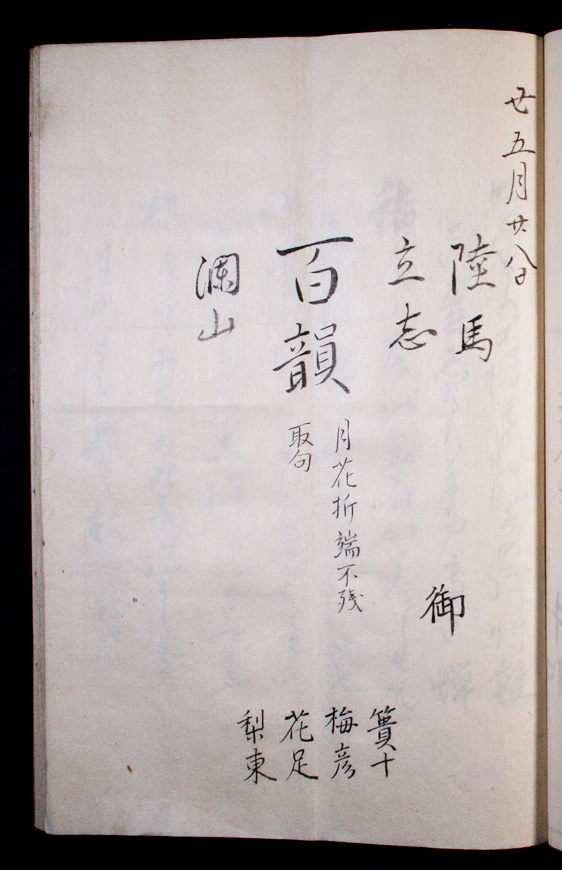 廿五月廿八日
陸馬
立志
御
百韻
月花折端不残
取句
瀾山
簣十
梅彦
花足
梨東